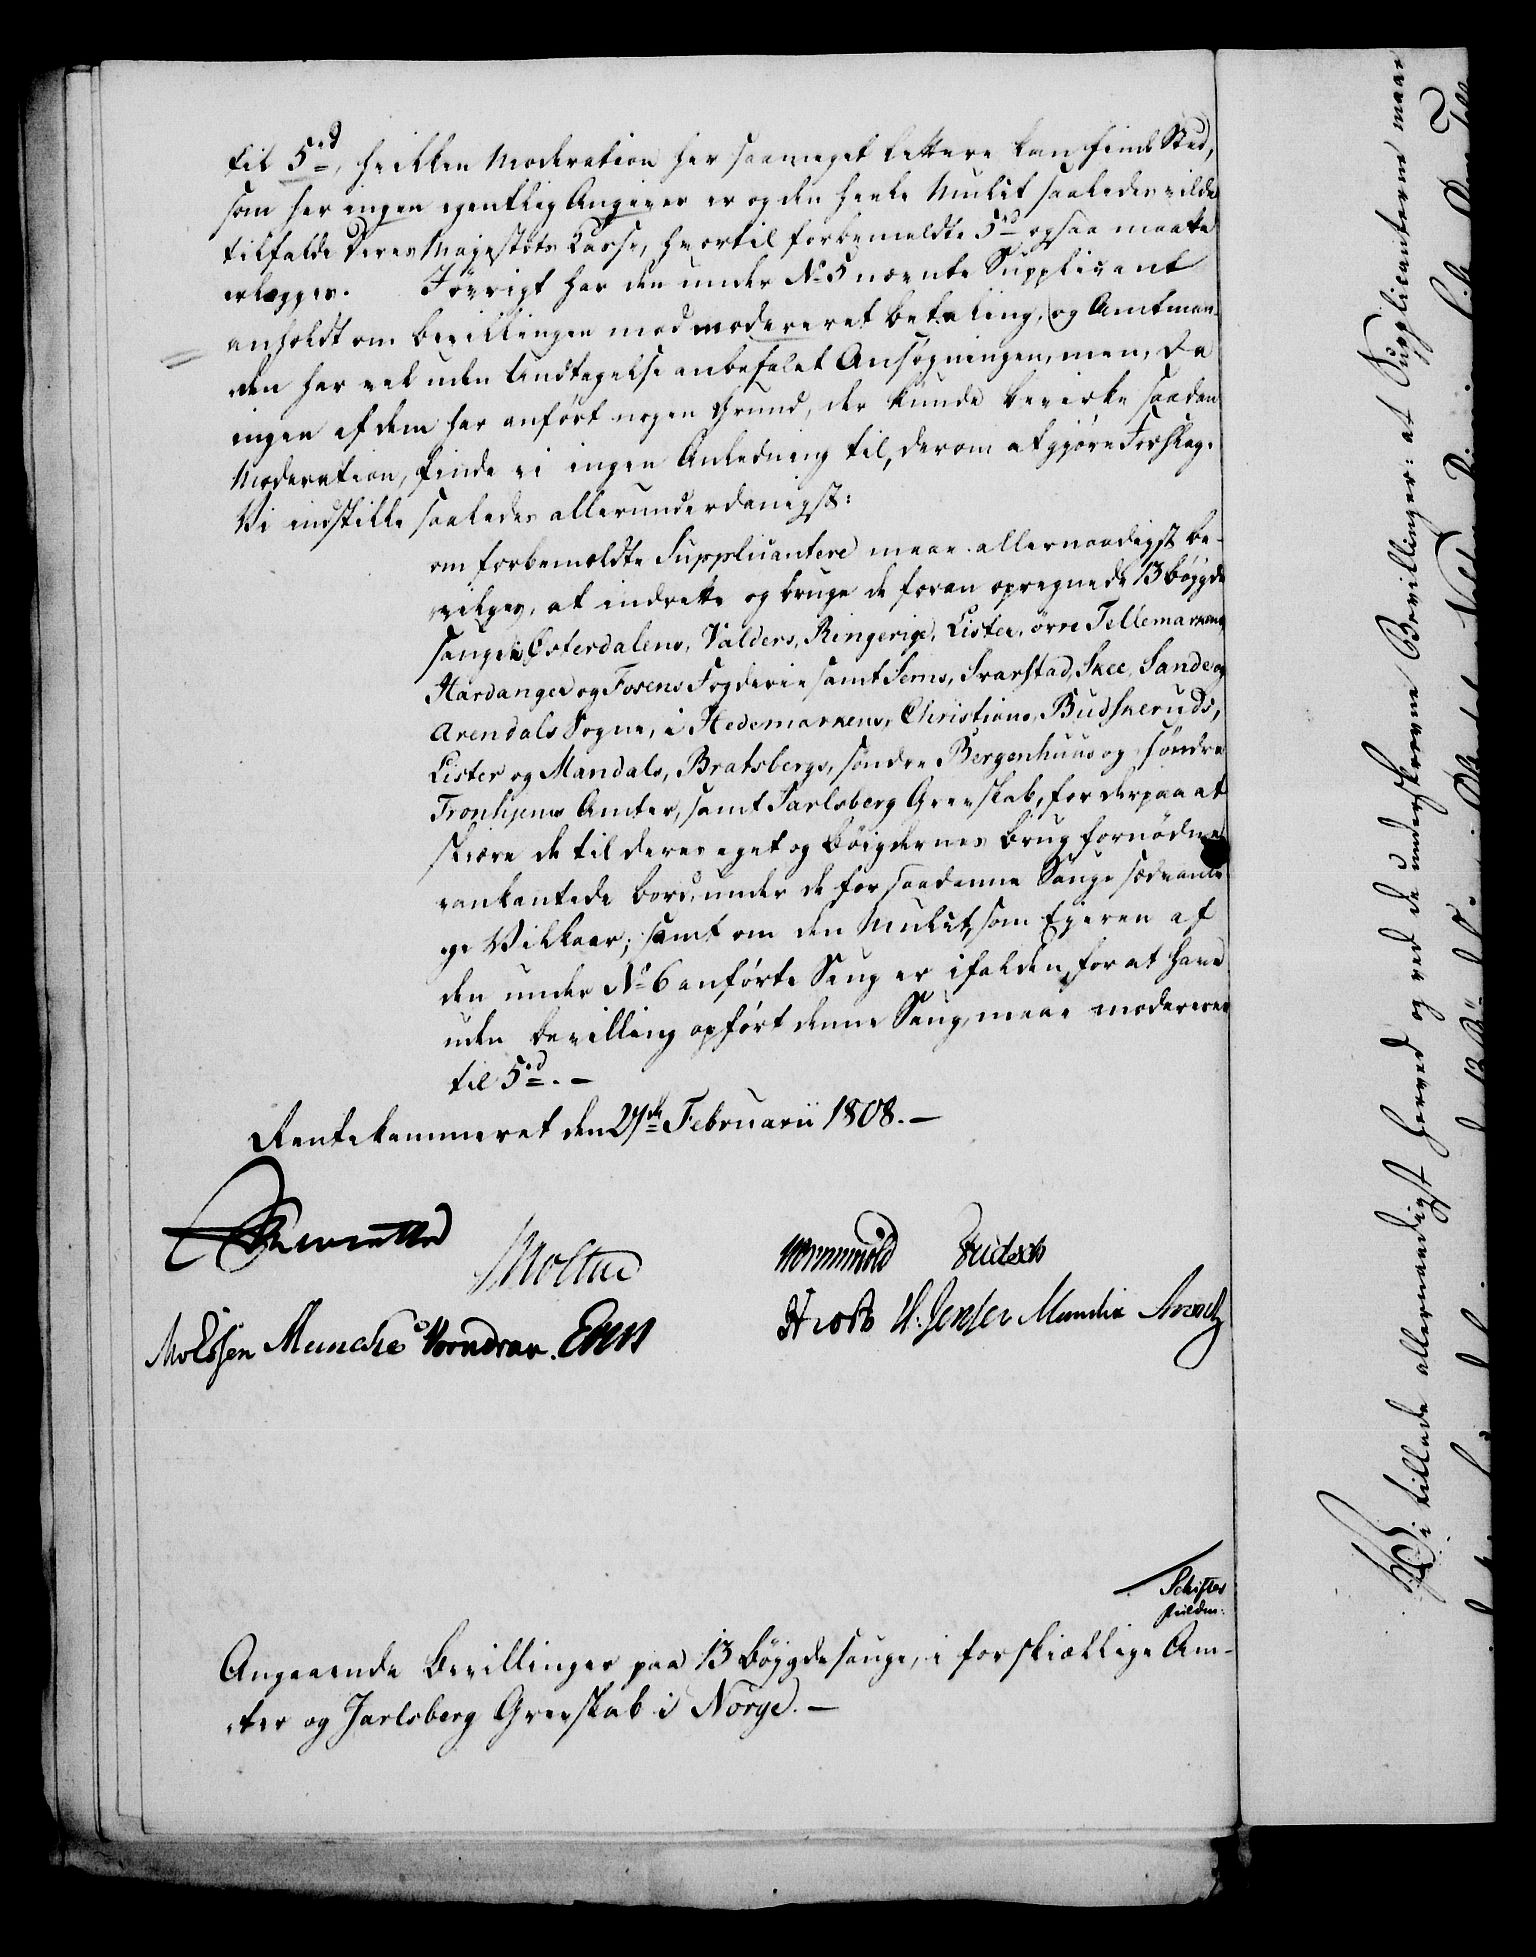 til 5rd, hvilken Moderation her saameget lettere kan finde Sted,
som her ingen egentlig Angiver er og den heele Mulct saaledes vilde
tilfalde Deres Majestets Casse, hvortil forbemeldte 5rd ogsaa maatte
erlægges. Iøvrigt har den under No 5 nævnte Supplicant
anholdt om Bevillingen mod modereret betaling, og Amtman-
den har vel uden Undtagelse anbefalet Ansøgningen, men, da
ingen af dem har anført nogen Grund, der kunde bevirke saadan
Moderation, finde vi ingen Anledning til, derom at gjøre Forslag.
Vi indstille saaledes allerunderdanigst:
om forbemeldte Supplicantere maae allernaadigst be-
vilges, at indrette og bruge de foran opregnede 13 bøygde
sauge i Østerdalens, Valders, Ringerige, Lister, øvre Tellemarkens,
Hardanger og Fosens Fogderie samt Sems, Svarstad, Skee, Sande og
Arendals Sogne, i Hedemarkens, Christians, Budskeruds,
Lister og Mandals, Bratsbergs, søndre Bergenhuus og søndre
Tronhjems Amter, samt Jarlsberg Grevskab, for derpaa at
skiære de til deres eget og bøigdernes brug fornødne
vankantede bord, under de for saadanne Sauge sædvanli-
ge Vilkaar; samt om den Mulct, som Eieren af
den under No 6 anførte Saug er ifalden, for at have
uden bevilling opført denne Saug, maae modereres
til 5rd. —
Rentekammeret den 27de Februarii 1808. —
Reventlow
Moltke
Wormskiold
Molssen Muncke Wrondrar.
Frost H. Jensen Mandix
Schifter
Angaaende Bevillinger paa 13 bøygdesauge, i forskiællige Am-
ter og Jarlsberg Grevskab i Norge. —
Vi tillade allernaadigst herved og ved de underskrevne Bevillinger: at Supplicanterne maae